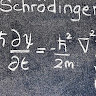 Schrodinger
ℏ ∂ψ/∂t = -ℏ²/2m ∇²